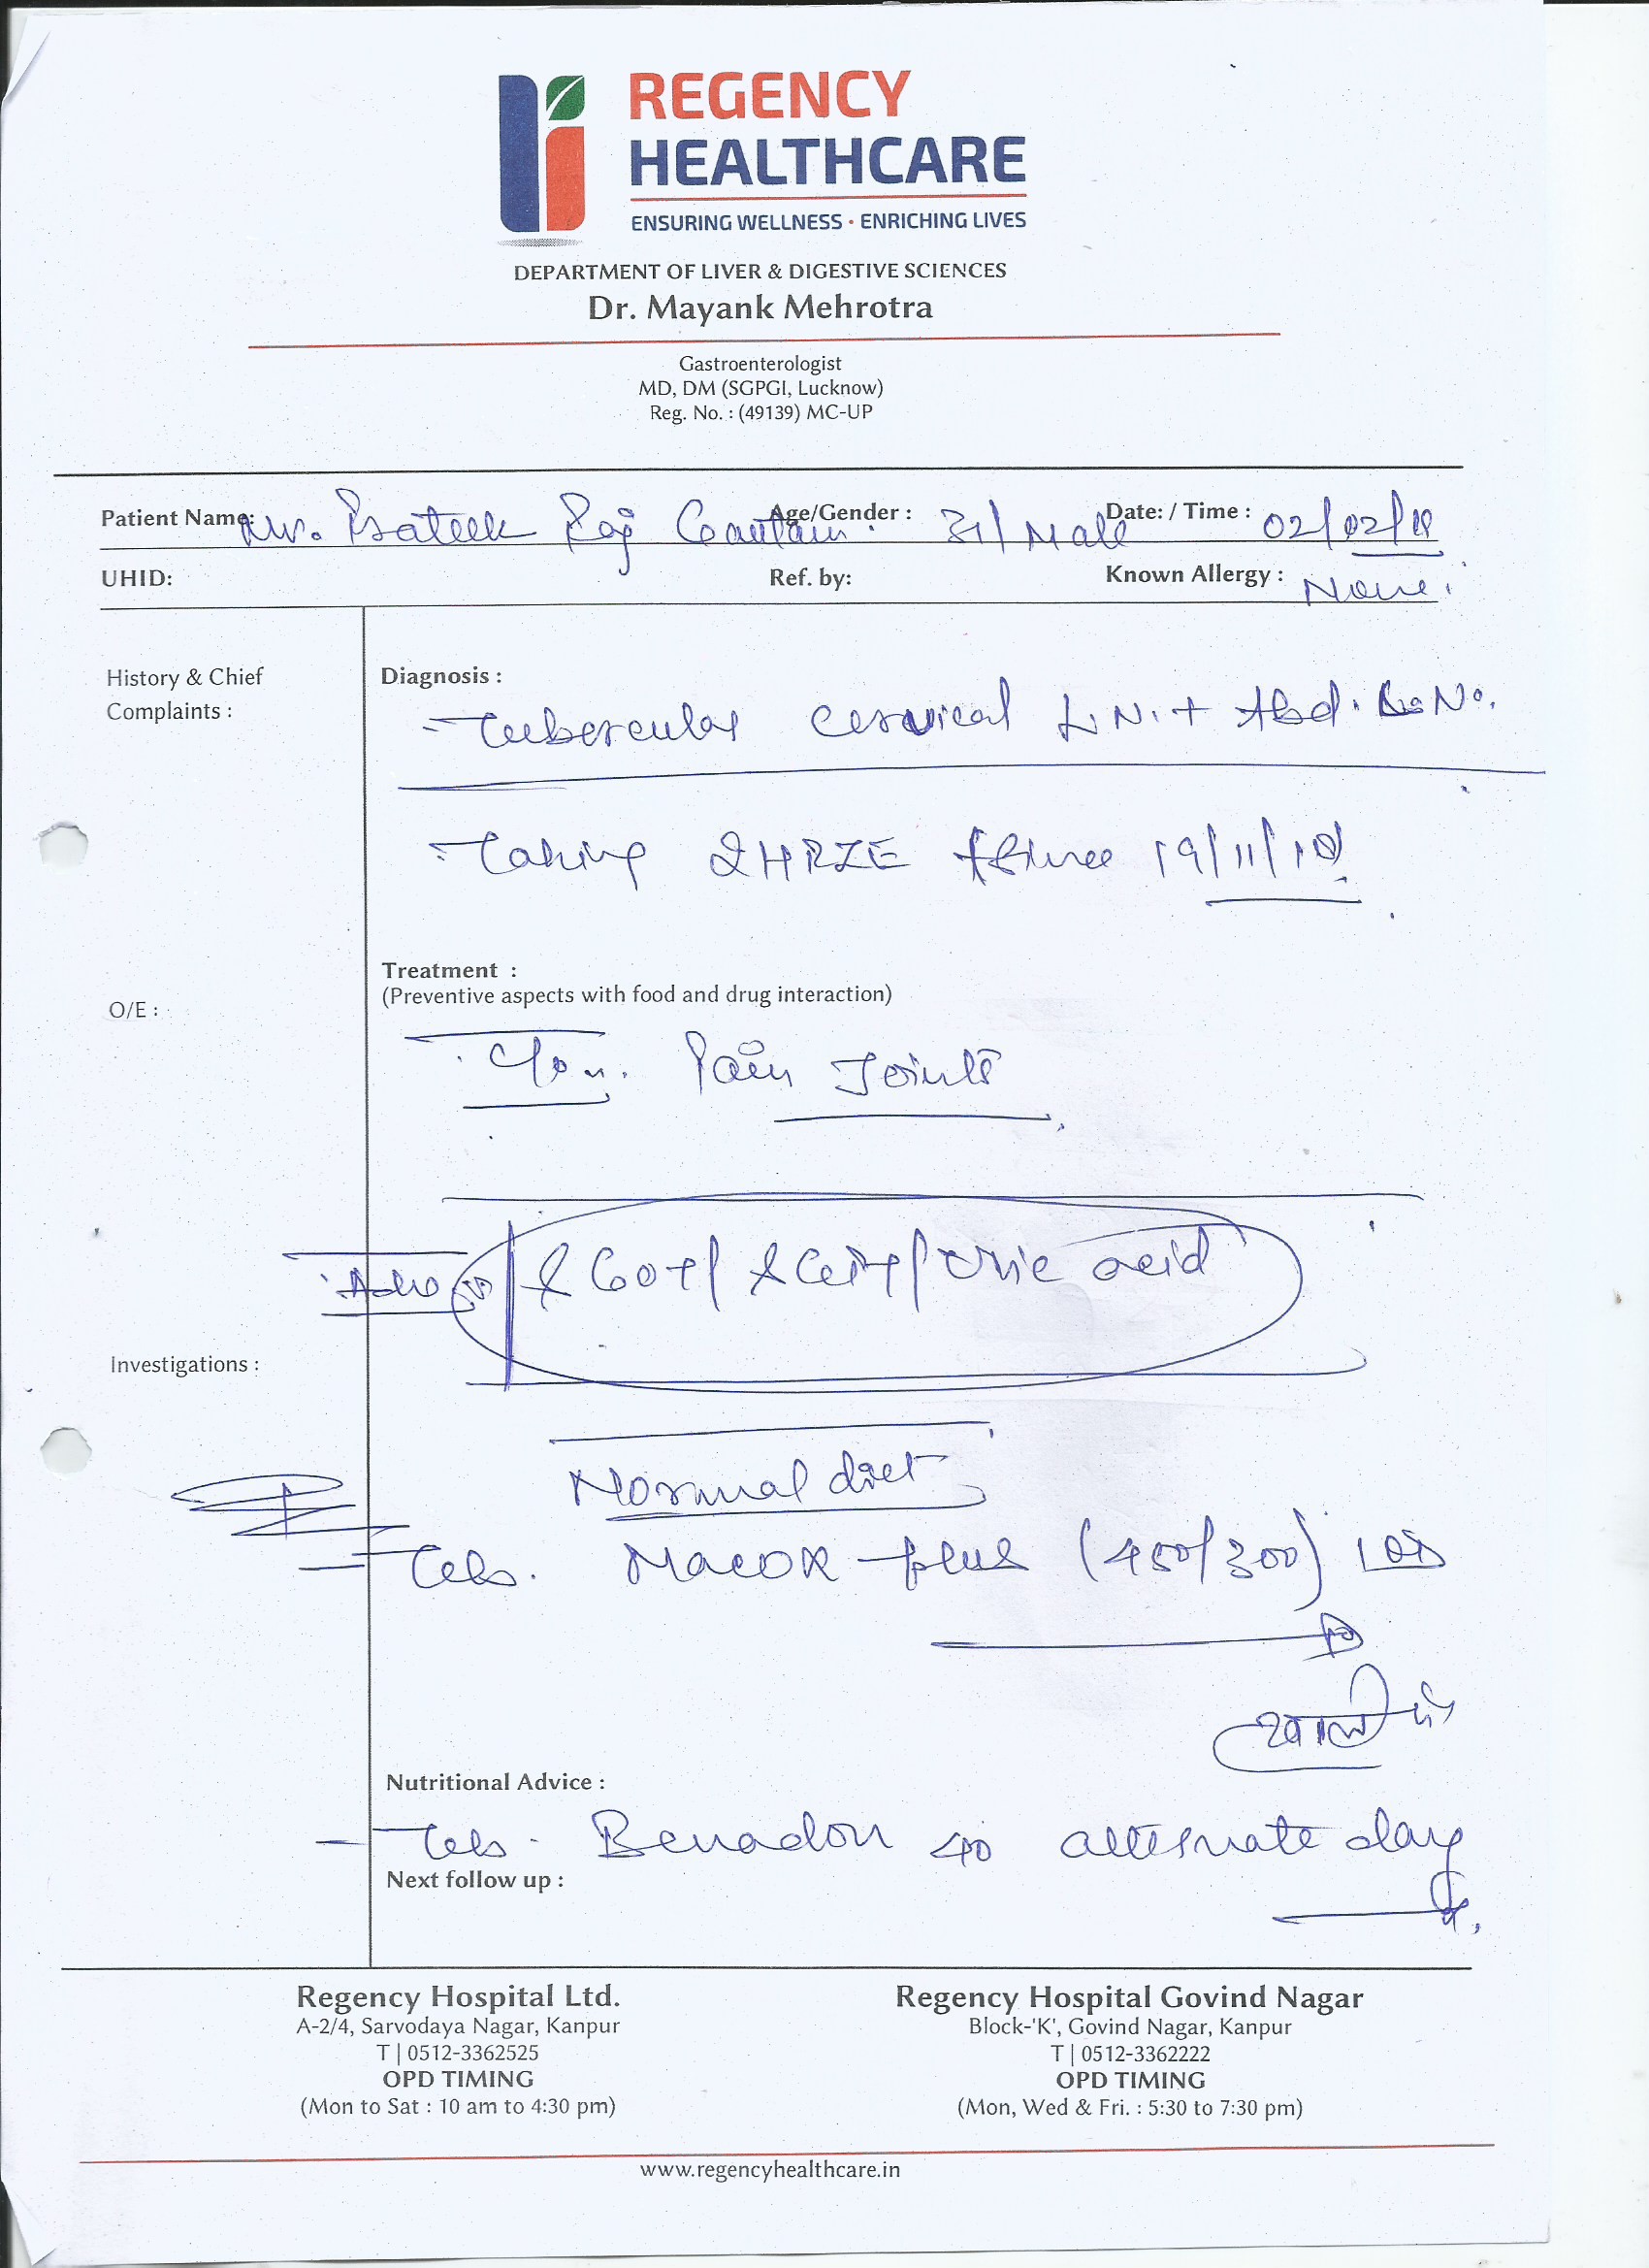 REGENCY
HEALTHCARE
ENSURING WELLNESS · ENRICHING LIVES
DEPARTMENT OF LIVER & DIGESTIVE SCIENCES
Dr. Mayank Mehrotra
Gastroenterologist
MD, DM (SGPGI, Lucknow)
Reg. No. : (49139) MC-UP
Patient Name: Mr. Prateek Raj Gautam Age/Gender : 31/Male Date: / Time : 02/02/18
UHID: Ref. by: Known Allergy : None.
History & Chief
Complaints :
Diagnosis :
- Tubercular cervical L.N. + Abd. L.N.
- Taking 2HRZE since 19/11/
Treatment :
(Preventive aspects with food and drug interaction)
O/E :
Pain Joints
SGOT/ SGPT/ Uric acid
Investigations :
Normal diet
- Tab. Macox plus (450/300) 1 OD
खाली पेट
Nutritional Advice :
- Tab. Benadon 40 alternate day
Next follow up :
Regency Hospital Ltd.
A-2/4, Sarvodaya Nagar, Kanpur
T | 0512-3362525
OPD TIMING
(Mon to Sat : 10 am to 4:30 pm)
Regency Hospital Govind Nagar
Block-'K', Govind Nagar, Kanpur
T | 0512-3362222
OPD TIMING
(Mon, Wed & Fri. : 5:30 to 7:30 pm)
www.regencyhealthcare.in